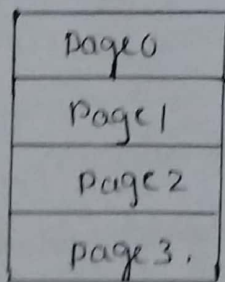 page0
Page1
page2
page3.